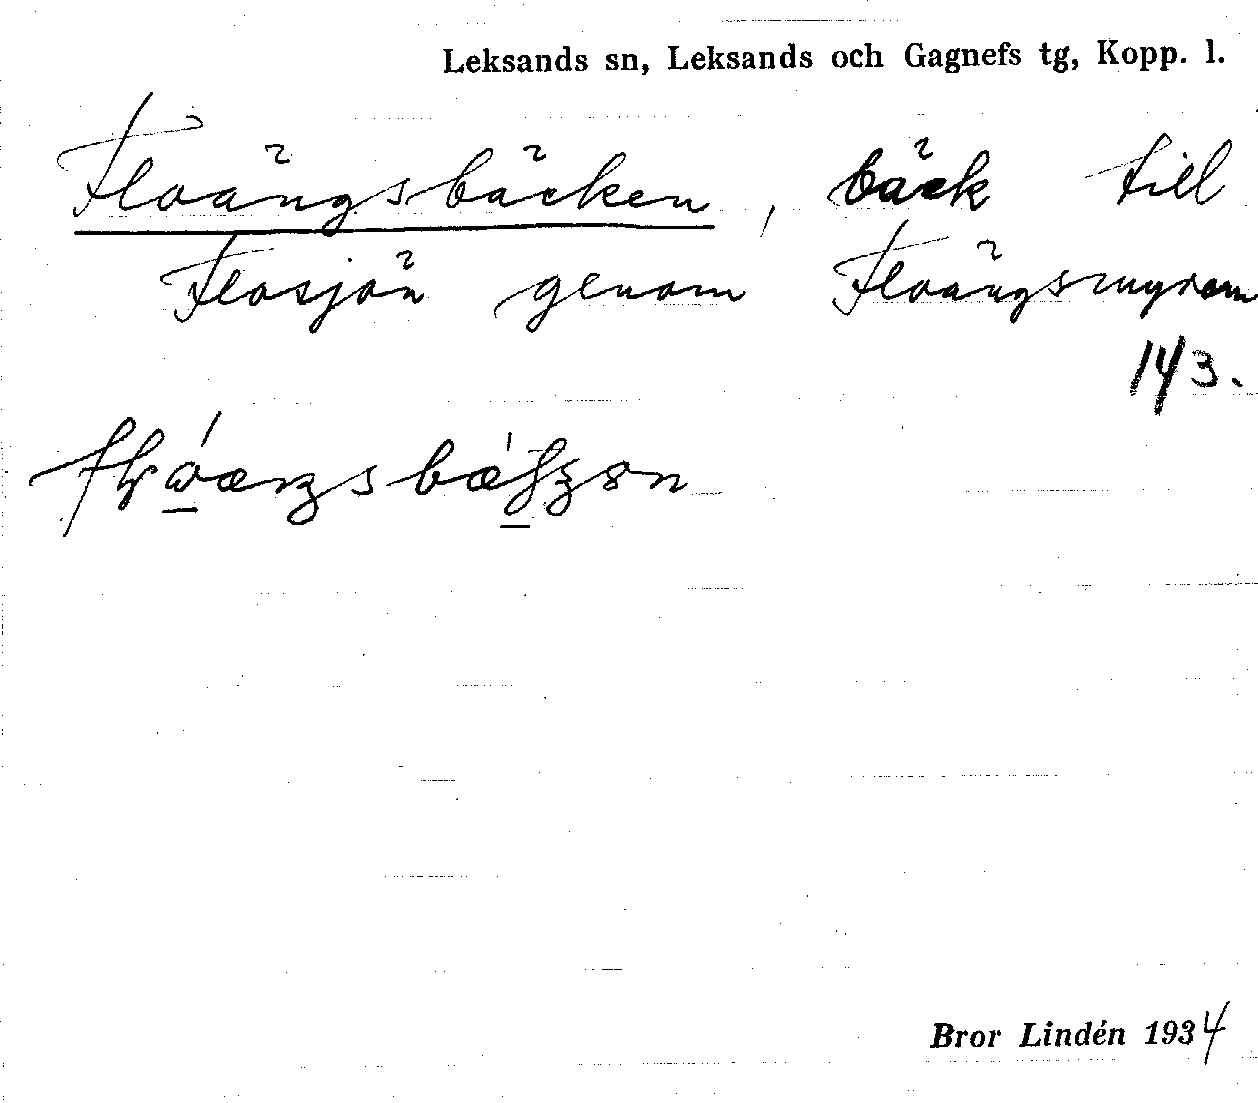 Leksands sn, Leksands och Gagnefs tg, Kopp. l.
Floängsbäcken, bäck till
Flosjön genom Floängsmyran
143.
Bror Lindén 1934